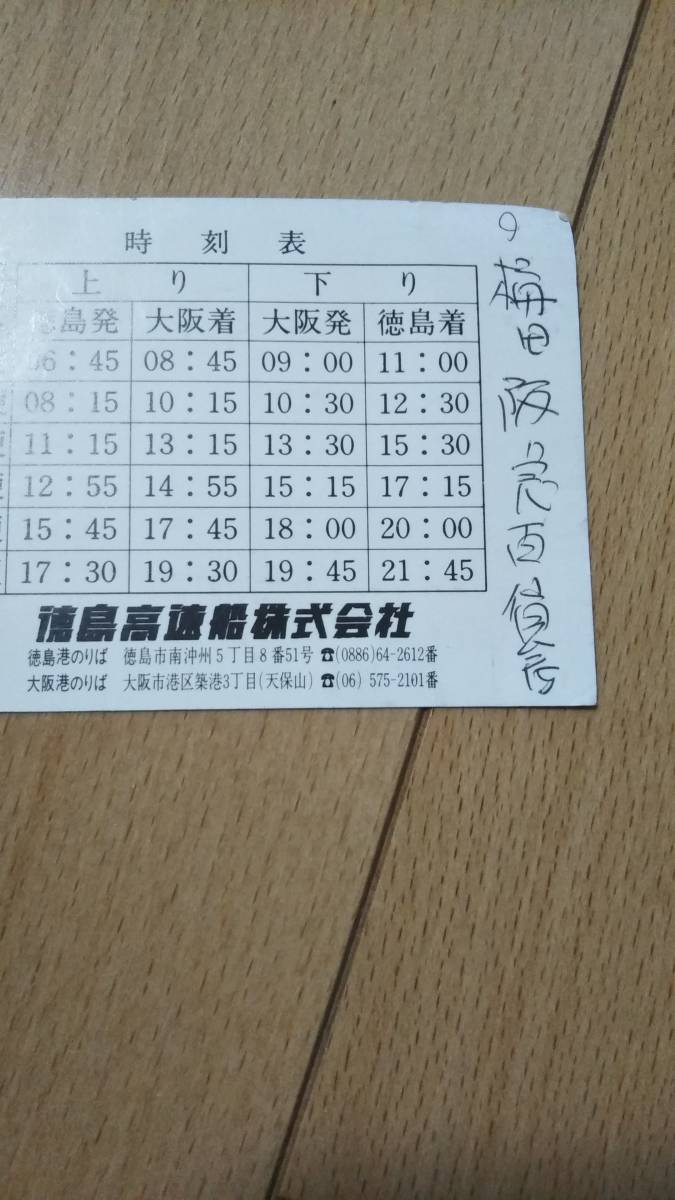 時刻表
上り 下り
徳島発 大阪着 大阪発 徳島着
06:45 08:45 09:00 11:00
便 08:15 10:15 10:30 12:30
便 11:15 13:15 13:30 15:30
便 12:55 14:55 15:15 17:15
便 15:45 17:45 18:00 20:00
17:30 19:30 19:45 21:45
徳島高速船株式会社
徳島港のりば 徳島市南沖州5丁目8番51号 ☎(0886)64-2612番
大阪港のりば 大阪市港区築港3丁目(天保山) ☎(06) 575-2101番
梅田 阪急百貨店